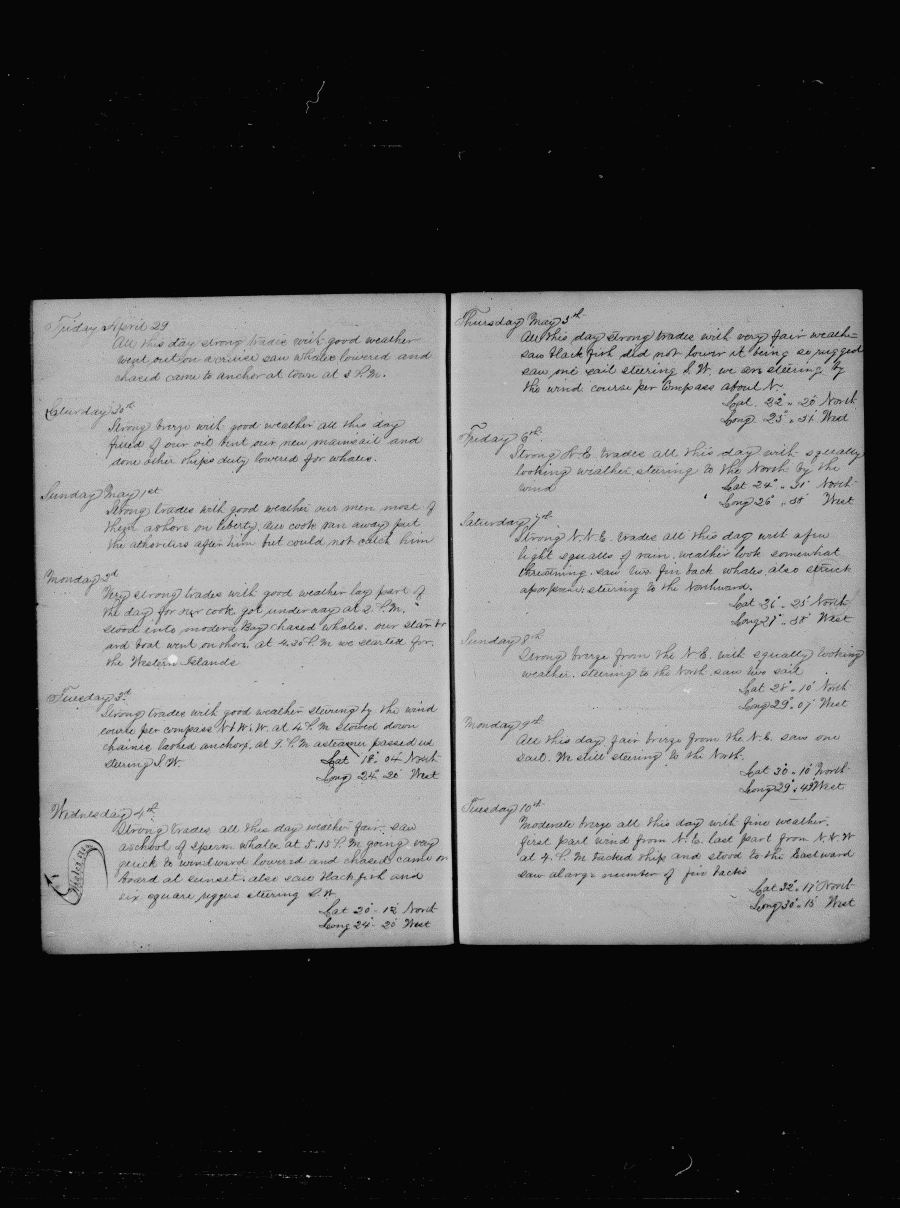 Friday April 29
All this day strong trades with good weather
went out on a cruise saw whales lowered and
chased came to anchor at town at 5 P.M.
Saturday 30th
Strong breeze with good weather all this day
of our oil bent our new mainsail and
done other ships duty lowered for whales.
Sunday May 1st
Strong trades with good weather our men most of
them ashore on liberty, our cook ran away put
the athorities after him but could not catch him
Monday 2d
Very strong trades with good weather lay part of
the day for our cook got underway at 2 P.M.
stood into Bay chased whales. our
and boat went on shore. at 4.30 P.M we started for
the Western Islands
Tuesday 3d
Strong trades with good weather steering by the wind
course per compass at 4 P.M stowed down
chaines lashed anchors, at 9 P.M a steamer passed us
steering S.W.
Lat 18° 04' North
Long 24° 20' West
Wednesday 4th
Strong trades all this day weather fair. saw
a school of sperm whales at 5.15 P.M going very
quick to windward lowered and chased came on
board at sunset. also saw black fish and
six square riggers steering S.W
Lat 20° 12' North
Long 24° 20' West
Thursday May 5th
All this day strong trades with very fair weather
saw black fish did not lower it being so rugged
saw one sail steering S.W. we are steering by
the wind course per Compass about N.
Lat. 22° 20' North
Long 25° 51' West
Friday 6th
Strong N.E. trades all this day with squally
looking weather, steering to the North by the
wind
Lat 24° West North
Long 26° West
Saturday 7th
Strong N.N.E. trades all this day with a few
light squalls of rain. weather look somewhat
thretning. saw two fin back whales. also struck
a porpoise steering to the Northward.
Lat 26° 25' North
Long 27° 38' West
Sunday 8th
Strong breeze from the N.E. with squally looking
weather. steering to the North saw two sail
Lat 28° 10' North
Long 29° 07' West
Monday 9th
All this day fair breeze from the N.E. saw one
sail. We still steering to the North.
Lat 30° 10' North
Long 29° 49' West
Tuesday 10th
Moderate breeze all this day with fine weather.
first part wind from N.E. last part from N.N.W
at 4 P.M tacked ship and stood to the Eastward
saw a large number of fin backs
Lat 32° 17' North
Long 30° 15' West